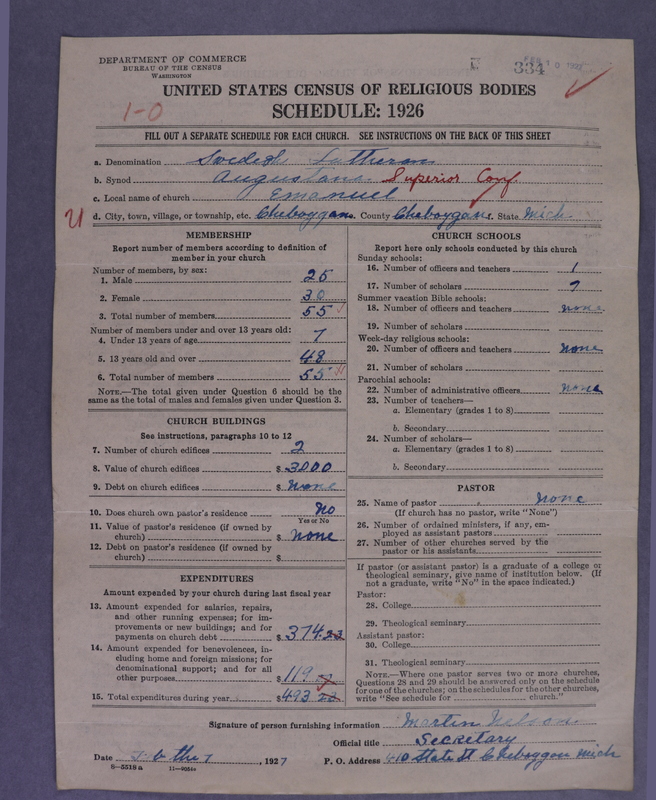 DEPARTMENT OF COMMERCE
BUREAU OF THE CENSUS
WASHINGTON
334
UNITED STATES CENSUS OF RELIGIOUS BODIES
1-0
SCHEDULE: 1926
FILL OUT A SEPARATE SCHEDULE FOR EACH CHURCH. SEE INSTRUCTIONS ON THE BACK OF THIS SHEET
a. Denomination Swedish Lutheran
b. Synod Augustana Superior Conf
c. Local name of church Emanuel
d. City, town, village, or township, etc. Cheboygan e. County Cheboygan f. State Mich
MEMBERSHIP
Report number of members according to definition of member in your church
Number of members, by sex:
1. Male 25
2. Female 30
3. Total number of members 55
Number of members under and over 13 years old:
4. Under 13 years of age 7
5. 13 years old and over 48
6. Total number of members 55
NOTE.—The total given under Question 6 should be the same as the total of males and females given under Question 3.
CHURCH BUILDINGS
See instructions, paragraphs 10 to 12
7. Number of church edifices 2
8. Value of church edifices $ 3000
9. Debt on church edifices $ None
10. Does church own pastor's residence No
Yes or No
11. Value of pastor's residence (if owned by church) $ none
12. Debt on pastor's residence (if owned by church) $
EXPENDITURES
Amount expended by your church during last fiscal year
13. Amount expended for salaries, repairs, and other running expenses; for improvements or new buildings; and for payments on church debt $ 374.23
14. Amount expended for benevolences, including home and foreign missions; for denominational support; and for all other purposes $ 119
15. Total expenditures during year $ 493 23
CHURCH SCHOOLS
Report here only schools conducted by this church
Sunday schools:
16. Number of officers and teachers 1
17. Number of scholars 7
Summer vacation Bible schools:
18. Number of officers and teachers none
19. Number of scholars
Week-day religious schools:
20. Number of officers and teachers none
21. Number of scholars
Parochial schools:
22. Number of administrative officers none
23. Number of teachers—
a. Elementary (grades 1 to 8)
b. Secondary
24. Number of scholars—
a. Elementary (grades 1 to 8)
b. Secondary
PASTOR
25. Name of pastor none
(If church has no pastor, write "None")
26. Number of ordained ministers, if any, employed as assistant pastors
27. Number of other churches served by the pastor or his assistants
If pastor (or assistant pastor) is a graduate of a college or theological seminary, give name of institution below. (If not a graduate, write "No" in the space indicated.)
Pastor:
28. College
29. Theological seminary
Assistant pastor:
30. College
31. Theological seminary
NOTE.—Where one pastor serves two or more churches, Questions 28 and 29 should be answered only on the schedule for one of the churches; on the schedules for the other churches, write "See schedule for church."
Signature of person furnishing information Martin Nelson
Official title Secretary
Date , 1927 P. O. Address 410 State St Cheboygan Mich
8—5518a